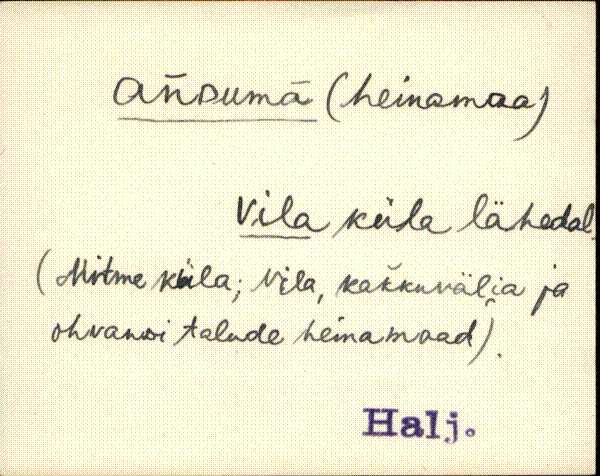 añsumā (heinamaa)
Vila küla lähedal.
(Mitme küla; Vila, kakkuvälja ja
talude heinamaad).
Halj.